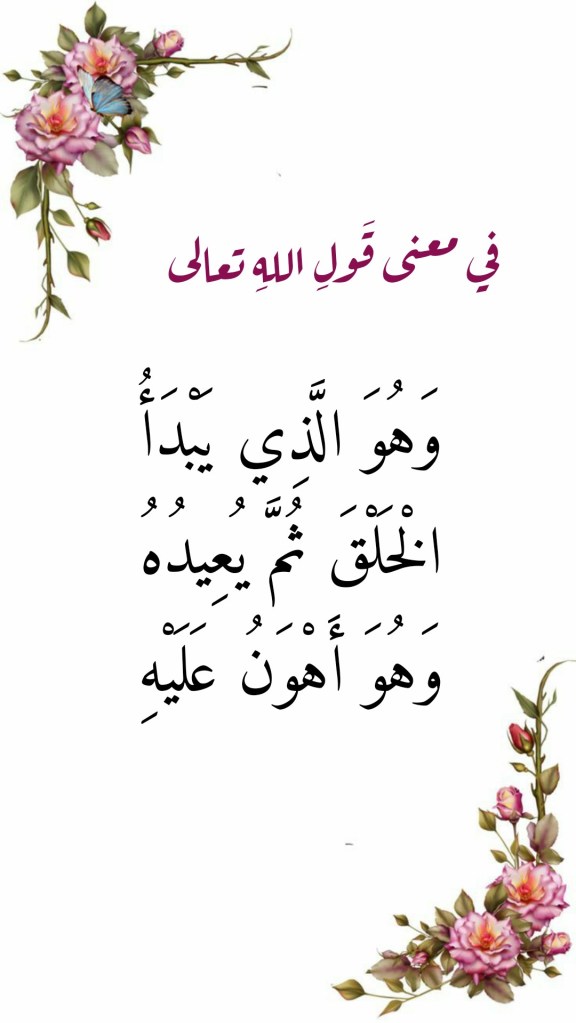 في معنى قَولِ اللهِ تعالى
وَهُوَ الَّذِي يَبْدَأُ
الْخَلْقَ ثُمَّ يُعِيدُهُ
وَهُوَ أَهْوَنُ عَلَيْهِ